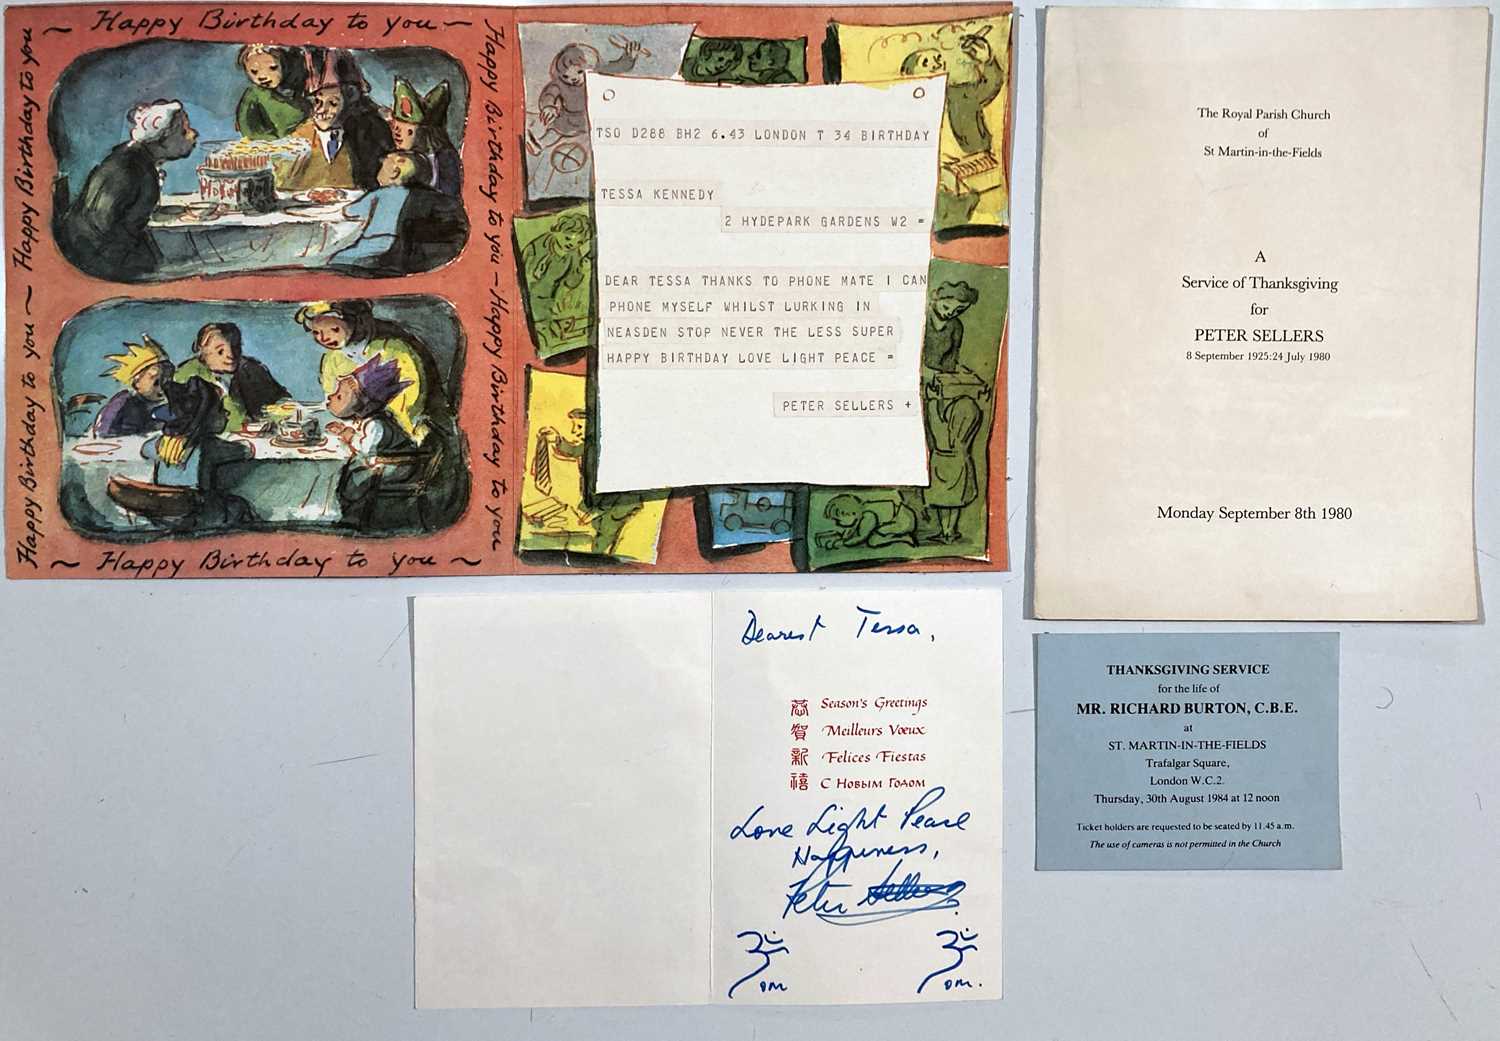 ~ Happy Birthday to you ~
Happy Birthday to you ~ Happy Birthday to you
Happy Birthday to you — Happy Birthday to you
~ Happy Birthday to you ~
TSO D288 BH2 6.43 LONDON T 34 BIRTHDAY
TESSA KENNEDY
2 HYDEPARK GARDENS W2 =
DEAR TESSA THANKS TO PHONE MATE I CAN
PHONE MYSELF WHILST LURKING IN
NEASDEN STOP NEVER THE LESS SUPER
HAPPY BIRTHDAY LOVE LIGHT PEACE =
PETER SELLERS +
The Royal Parish Church
of
St Martin-in-the-Fields
A
Service of Thanksgiving
for
PETER SELLERS
8 September 1925:24 July 1980
Monday September 8th 1980
Dearest Tessa,
恭 Season's Greetings
賀 Meilleurs Vœux
新 Felices Fiestas
禧 С Новым Годом
Love Light Peace
Happiness,
Peter Sellers.
ॐ ॐ
om om.
THANKSGIVING SERVICE
for the life of
MR. RICHARD BURTON, C.B.E.
at
ST. MARTIN-IN-THE-FIELDS
Trafalgar Square,
London W.C.2.
Thursday, 30th August 1984 at 12 noon
Ticket holders are requested to be seated by 11.45 a.m.
The use of cameras is not permitted in the Church